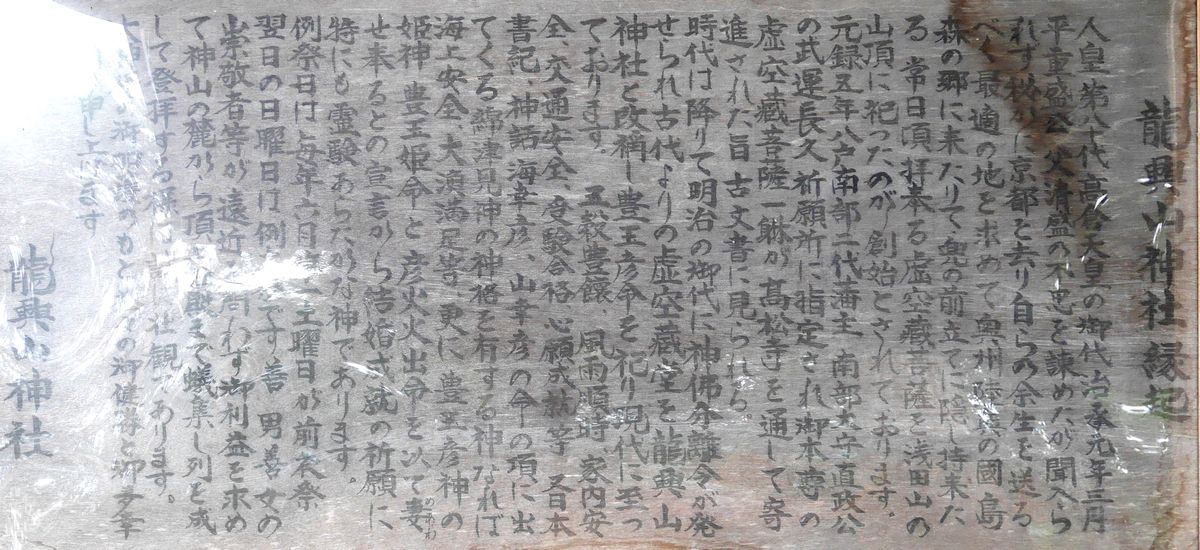 龍興山神社縁起
人皇第八十代高倉天皇の御代治承元年三月
平重盛公父清盛の不忠を諫めたが聞入ら
れず に京都を去り自らの余生を送る
べく最適の地を求めて奥州陸奥の國島
森の郷に来たりて兜の前立てに隠し持来た
る常日頃拝奉る虚空蔵菩薩を浅田山の
山頂に祀ったのが創始とされております。
元録五年八戸南部二代藩主南部大守直政公
の武運長久祈願所に指定され御本尊の
虚空蔵菩薩一躰が髙松寺を通して寄
進された旨古文書に見られる。
時代は降りて明治の御代に神佛分離令が発
せられ古代よりの虚空蔵堂を龍興山
神社と改稱し豊玉彦命を祀り現代に至っ
ております。五穀豊饒、風雨順時、家内安
全、交通安全、受験合格、心願成就等又日本
書記、神話海幸彦、山幸彦の命の項に出
てくる綿津見神の神格を有する神なれば
海上安全大漁満足等更に豊玉彦神の
姫神豊玉姫命と彦火火出命を以て妻
めあわ
せ奉るとの宣言から結婚成就の祈願に
特にも霊験あらたかな神であります。
例祭日は毎年六月 土曜日が前夜祭
翌日の日曜日は例 です善男善女の
崇敬者等が遠近 問わず御利益を求め
て神山の麓から頂 迄蟻集し列を成
して登拝する様 社観 あります。
の御健勝と御多幸
申し上ます
龍興山神社